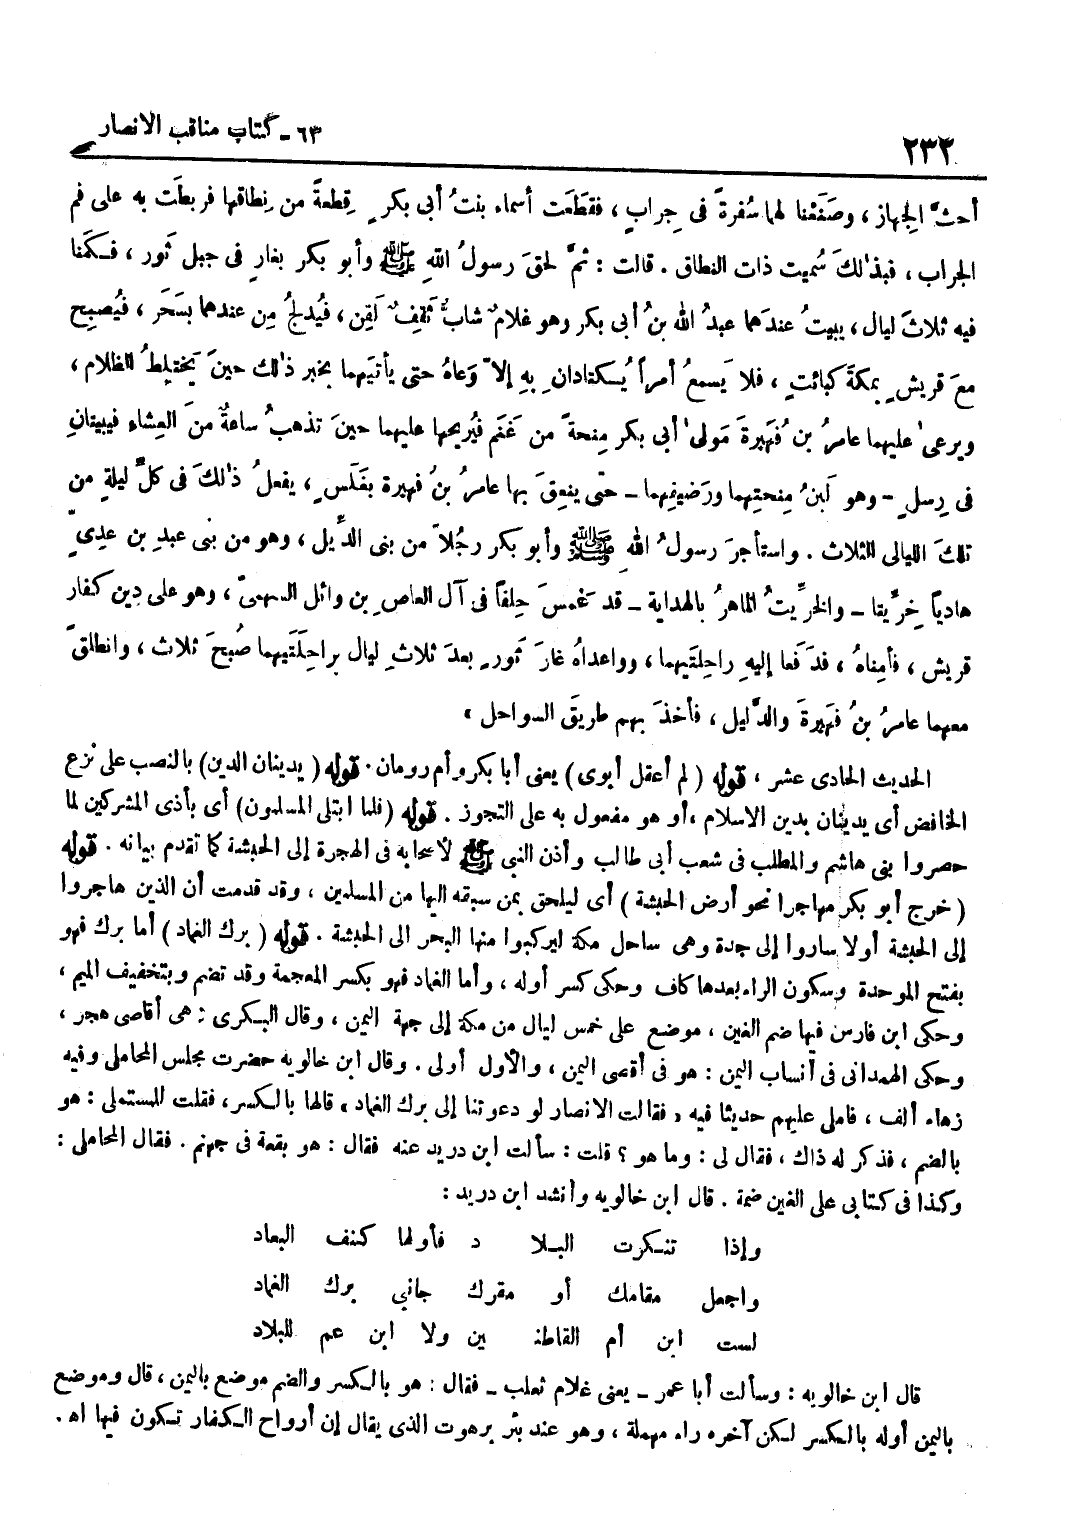 ٢٣٢
٦٣ - كتاب مناقب الانصار
أحثَّ الجِهاز ، وصَنَعْنا لهما سُفرةً فى جِرابٍ ، فقَطَعَت أسماء بنتُ أبى بكرٍ قِطعةً من نِطاقها فربطَت به على فم
الجراب ، فبذٰلكَ سُميت ذات النطاق . قالت : ثمَّ لحقَ رسولُ اللهِ ﷺ وأبو بكر بغارٍ فى جبل ثَور ، فكَمَنا
فيه ثلاثَ ليال ، يبيتُ عندَهما عبدُ الله بنُ أبى بكر وهو غلامٌ شابٌّ ثَقِفٌ لَقِن ، فيُدلجُ مِن عندهما بسَحَر ، فيُصبِح
معَ قريشٍ بمكةَ كبائتٍ ، فلا يَسمعُ أمراً يُكتادانِ بهِ إلاّ وَعاهُ حتى يأتيَهما بخبر ذٰلك حينَ يَختلِطُ الظلام ،
ويرعىٰ عليهما عامرُ بنُ فُهَيرةَ مَولىٰ أبى بكر مِنحةً من غَنَم فيُريحها عليهما حينَ تذهبُ ساعةٌ منَ العِشاءِ فيبيتانِ
فى رِسلٍ - وهو لَبَنُ مِنحتِهما ورَضيفِهما - حتى ينعِقَ بها عامرُ بنُ فهيرة بغَلَسٍ ، يفعلُ ذٰلكَ فى كلِّ ليلةٍ من
تلكَ الليالى الثلاث . واستأجرَ رسولُ اللهِ ﷺ وأبو بكر رجُلاً من بنى الدِّيل ، وهو من بنى عبدِ بن عدِىّ
هادياً خِرِّيتا - والخرِّيتُ الماهرُ بالهداية - قد غَمسَ حِلفاً فى آل العاصِ بن وائل السهمىّ ، وهو على دِين كفار
قريش ، فأمِناهُ ، فدَفعا إليهِ راحِلتَيهما ، وواعداهُ غارَ ثَورٍ بعدَ ثلاثِ ليال براحِلَتَيهما صُبحَ ثلاث ، وانطلقَ
معهما عامرُ بنُ فُهَيرةَ والدَّليل ، فأخذَ بهم طريقَ السواحل »
الحديث الحادى عشر ، قوله ( لم أعقل أبوى ) يعنى أبا بكر وأم رومان . قوله ( يدينان الدين ) بالنصب على نزع
الخافض أى يدينان بدين الاسلام ، أو هو مفعول به على التجوز . قوله ( فلما ابتلى المسلمون ) أى بأذى المشركين لما
حصروا بنى هاشم والمطلب فى شعب أبى طالب وأذن النبى ﷺ لأصحابه فى الهجرة إلى الحبشة كما تقدم بيانه . قوله
( خرج أبو بكر مهاجرا نحو أرض الحبشة ) أى ليلحق بمن سبقه اليها من المسلمين ، وقد قدمت أن الذين هاجروا
إلى الحبشة أولا ساروا إلى جدة وهى ساحل مكة ليركبوا منها البحر الى الحبشة . قوله ( برك الغماد ) أما برك فهو
بفتح الموحدة وسكون الراء بعدها كاف وحكى كسر أوله ، وأما الغماد فهو بكسر المعجمة وقد تضم وبتخفيف الميم ،
وحكى ابن فارس فيها ضم الغين ، موضع على خمس ليال من مكة إلى جهة اليمن ، وقال البكرى : هى أقاصى هجر ،
وحكى الهمدانى فى أنساب اليمن : هو فى أقصى اليمن ، والأول أولى . وقال ابن خالويه حضرت مجلس المحاملى وفيه
زهاء ألف ، فاملى عليهم حديثا فيه « فقالت الانصار لو دعوتنا إلى برك الغماد » قالها بالكسر ، فقلت للمستملى : هو
بالضم ، فذكر له ذاك ، فقال لى : وما هو ؟ قلت : سألت ابن دريد عنه فقال : هو بقعة فى جهنم . فقال المحاملى :
وكذا فى كتابى على الغين ضمة . قال ابن خالويه وأنشد ابن دريد :
وإذا تنكرت البلا د فأولها كنف البعاد
واجعل مقامك أو مقرك جانبى برك الغماد
لست ابن أم القاطنـ ين ولا ابن عم للبلاد
قال ابن خالويه : وسألت أبا عمر - يعنى غلام ثعلب - فقال : هو بالكسر والضم موضع باليمن ، قال وموضع
باليمن أوله بالكسر لكن آخره راء مهملة ، وهو عند بئر برهوت الذى يقال إن أرواح الكفار تكون فيها اهـ .